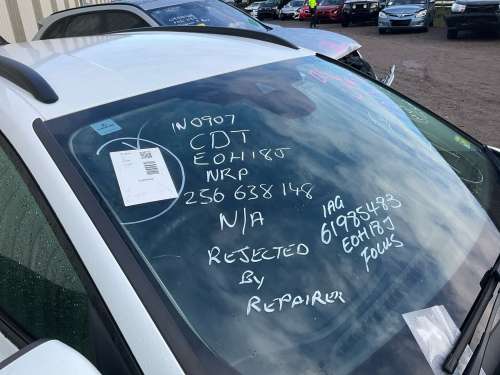 IN0907
CDT
EOH18J
NRP
256 638 148
N/A
REJECTED
By
REPAIRER
IAG
61985483
EOH18J
FOCUS